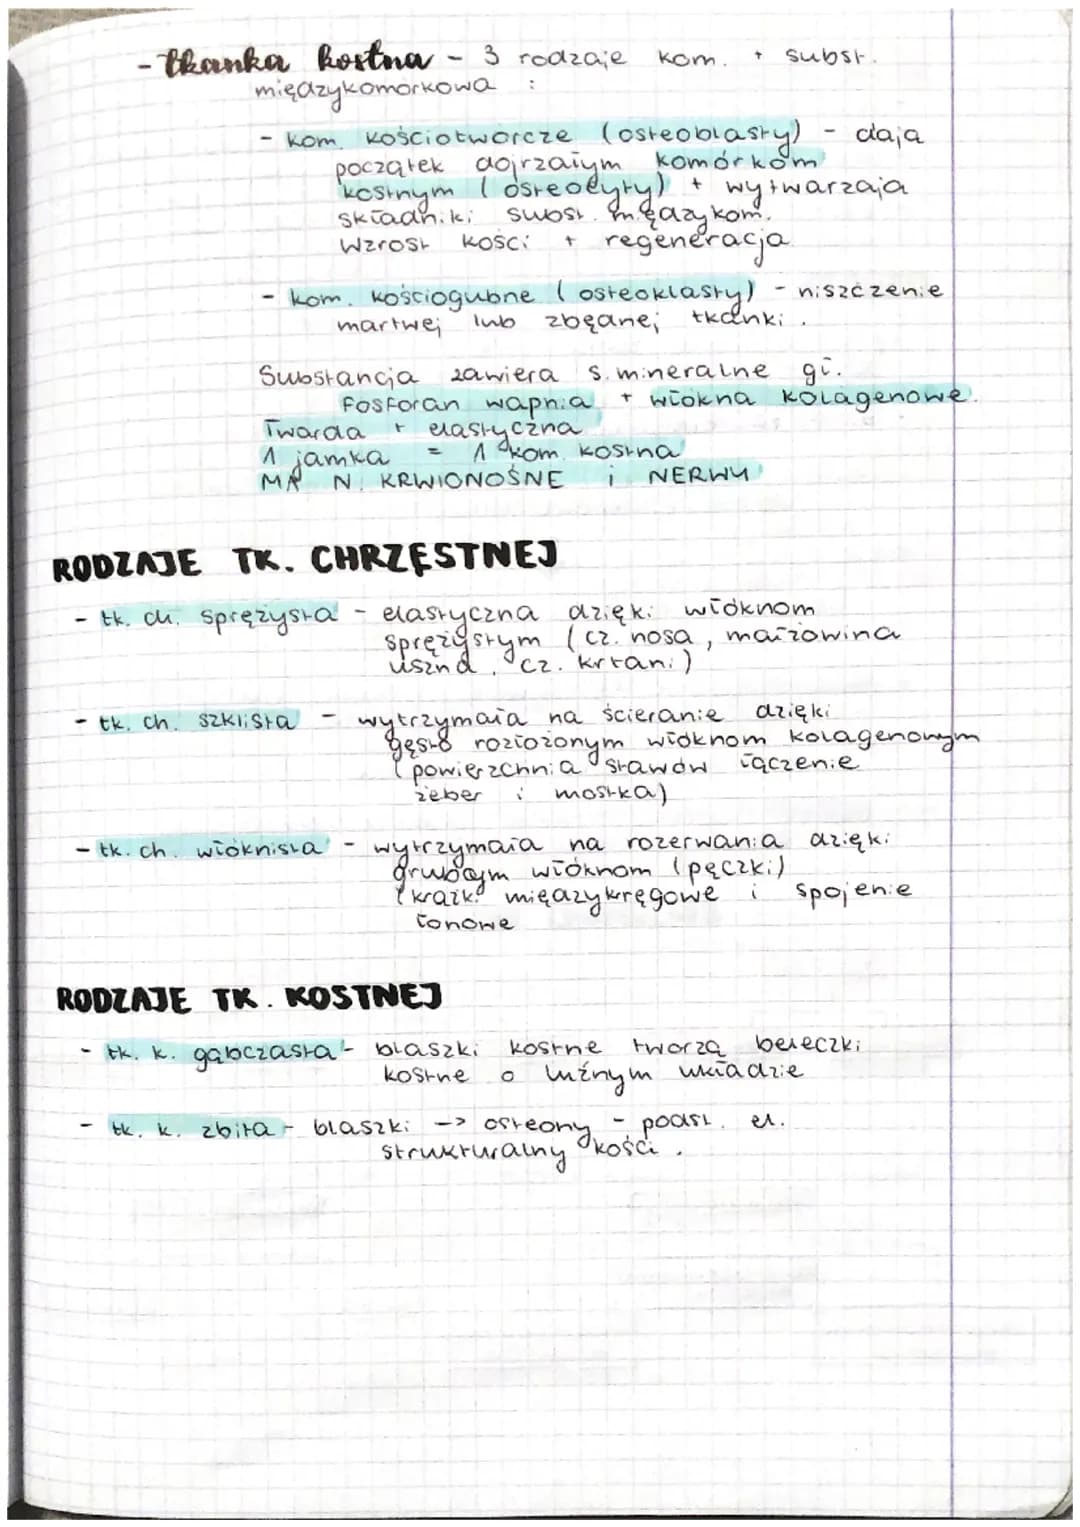 - tkanka kostna - 3 rodzaje kom. + subst.
międzykomórkowa :
- kom. kościotwórcze (osteoblasty) - dają
początek dojrzałym komórkom
kostnym (osteocyty) + wytwarzają
składniki subst. międzykom.
wzrost kości + regeneracja
- kom. kościogubne (osteoklasty) - niszczenie
martwej lub zbędnej tkanki.
Substancja zawiera s. mineralne gł.
fosforan wapnia + włókna kolagenowe.
Twarda + elastyczna
1 jamka = 1 kom. kostna
MA N. KRWIONOŚNE i NERWY
RODZAJE TK. CHRZĘSTNEJ
- tk. ch. sprężysta - elastyczna dzięki włóknom
sprężystym (cz. nosa, małżowina
uszna, cz. krtani)
- tk. ch. szklista - wytrzymała na ścieranie dzięki
gęsto rozłożonym włóknom kolagenowym
(powierzchnia stawów łączenie
żeber i mostka)
- tk. ch. włóknista - wytrzymała na rozerwania dzięki
grubym włóknom (pęczki)
(krążki międzykręgowe i spojenie
łonowe
RODZAJE TK. KOSTNEJ
- tk. k. gąbczasta - blaszki kostne tworzą beleczki
kostne o luźnym układzie
- tk. k. zbita - blaszki -> osteony - podst. el.
strukturalny kości.